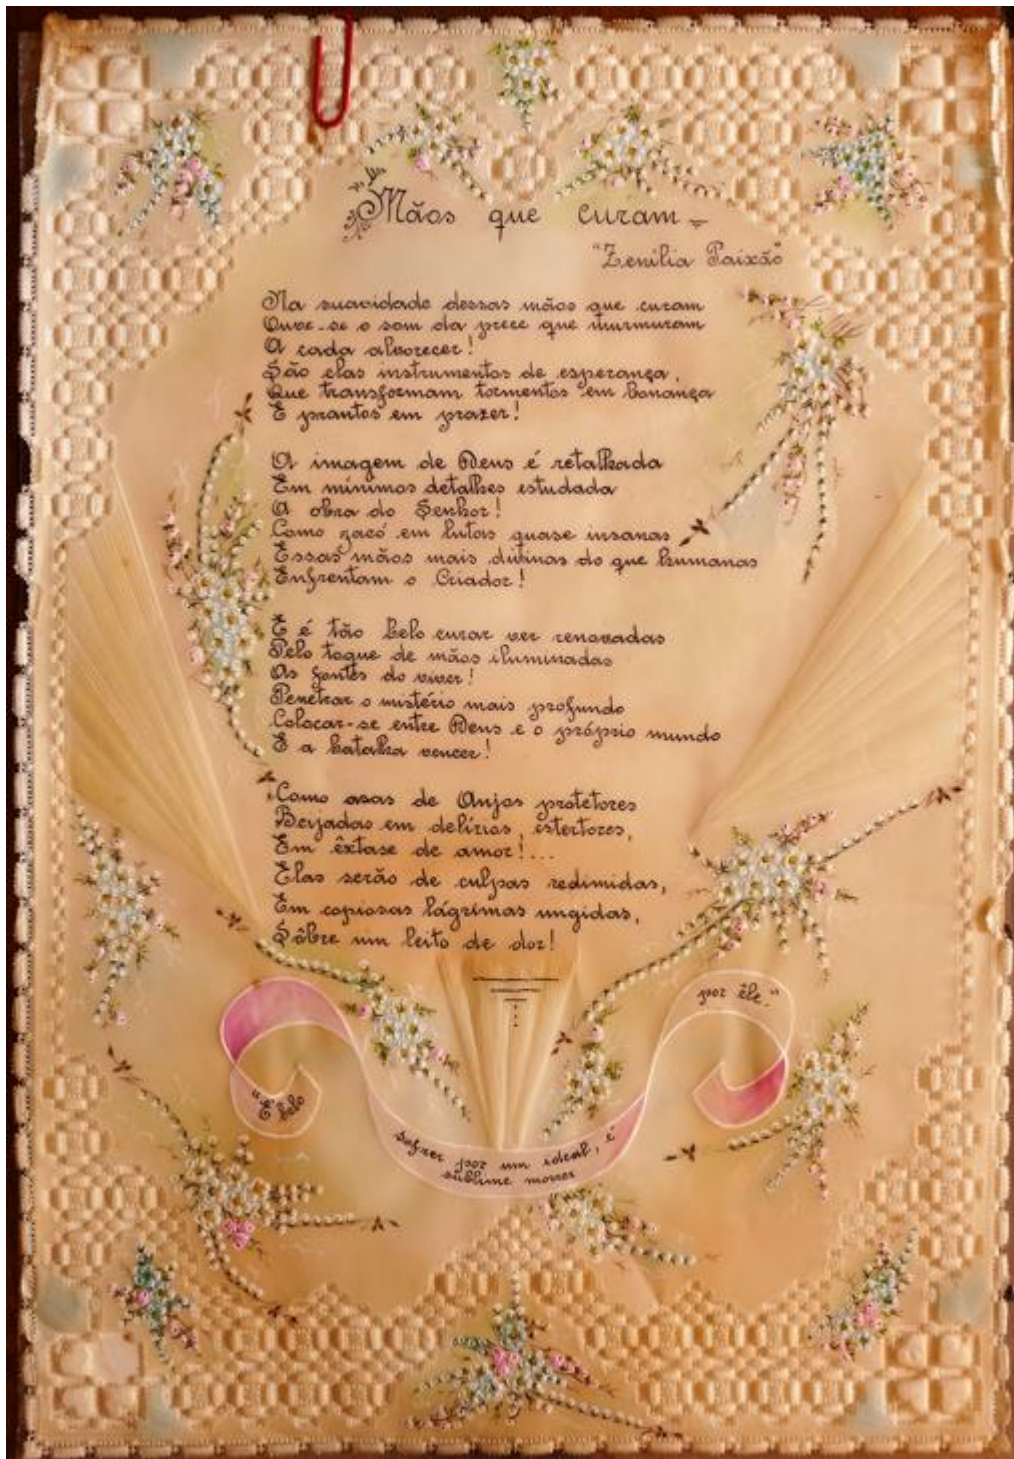 Mãos que curam
"Zenilia Paixão"
Na suavidade dessas mãos que curam
Ouve-se o som da prece que murmuram
A cada alvorecer!
São elas instrumentos de esperança,
Que transformam tormentos em bonança
E prantos em prazer!
A imagem de Deus é retalhada
Em mínimos detalhes estudada
A obra do Senhor!
Como jacó em lutas quase insanas
Essas mãos mais divinas do que humanas
Enfrentam o Criador!
E é tão belo curar ver renovadas
Pelo toque de mãos iluminadas
As fontes do viver!
Penetrar o mistério mais profundo
Colocar-se entre Deus e o próprio mundo
E a batalha vencer!
Como asas de Anjos protetores
Beijadas em delírios, estertores,
Em êxtase de amor!...
Elas serão de culpas redimidas,
Em copiosas lágrimas ungidas,
Sôbre um leito de dor!
"É belo
sofrer por um ideal, é
sublime morrer
por êle."